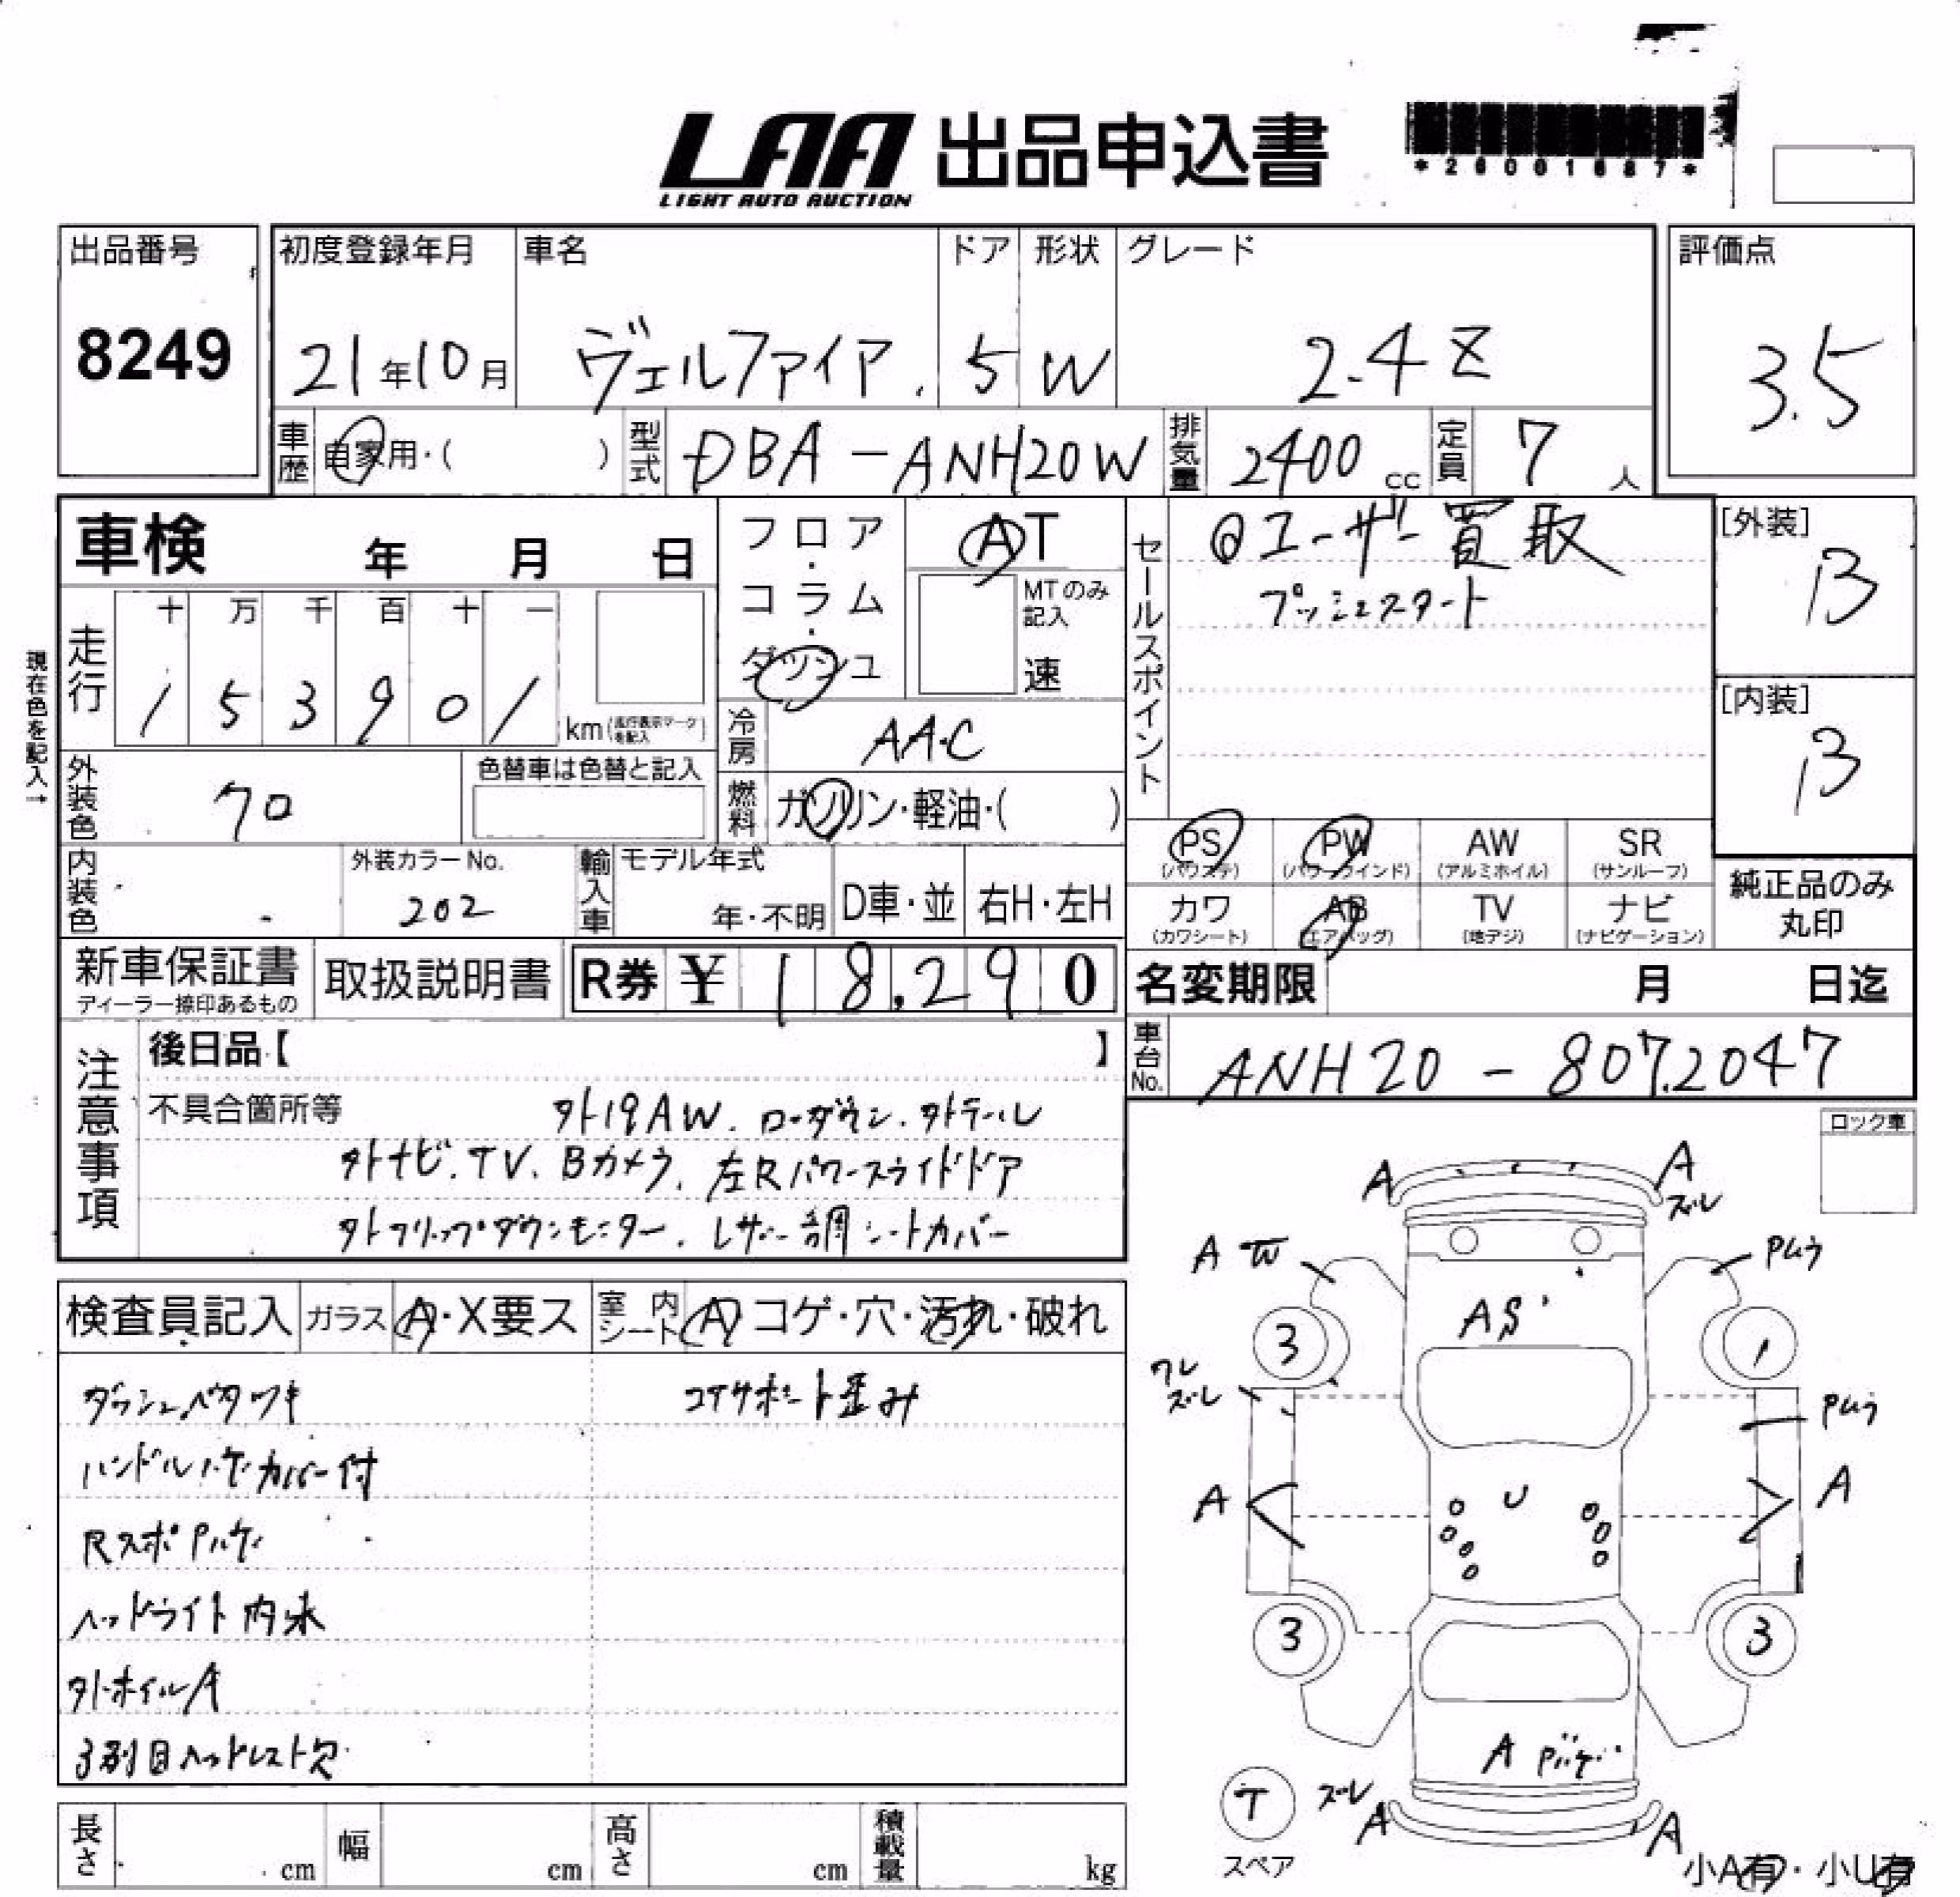 LAA 出品申込書
LIGHT AUTO AUCTION
出品番号
8249
初度登録年月
21年10月
車名
ヴェルファイア
ドア
5
形状
W
グレード
2.4Z
評価点
3.5
車歴
自家用・( )
型式
DBA-ANH20W
排気量
2400cc
定員
7人
車検 年 月 日
フロア・コラム・ダッシュ
AT
MTのみ記入
速
セールスポイント
◎ユーザー買取
プッシュスタート
[外装]
B
[内装]
B
現在色を記入→
走行
十 万 千 百 十 一
1 5 3 9 0 1
km(走行表示マークを記入)
冷房
AAC
燃料
ガソリン・軽油・( )
外装色
クロ
色替車は色替と記入
内装色
外装カラーNo.
202
輸入車
モデル年式
年・不明
D車・並
右H・左H
PS (パワステ)
PW (パワーウインド)
AW (アルミホイル)
SR (サンルーフ)
カワ (カワシート)
AB (エアバッグ)
TV (地デジ)
ナビ (ナビゲーション)
純正品のみ丸印
新車保証書
ディーラー捺印あるもの
取扱説明書
R券 ¥18,290
名変期限 月 日迄
車台No.
ANH20-8072047
注意事項
後日品【 】
不具合箇所等
外19AW. ローダウン. 外テール
外ナビ. TV. Bカメラ. 左Rパワースライドドア
外フリップダウンモニター. レザー調シートカバー
ロック車
検査員記入
ガラス A・X要ス
室内シート A コゲ・穴・汚れ・破れ
ダッシュベタツキ
コアサポート歪み
ハンドルハゲカバー付
RスポPハゲ
ヘッドライト内水
外ホイルA
3列目ヘッドレスト欠
A
A
ズレ
A W
Pムラ
AS
3
1
ワレ
ズレ
Pムラ
A
U
A
3
3
A Pハゲ
T
スペア
ズレ
A
A
小A有・小U有
長さ cm
幅 cm
高さ cm
積載量 kg